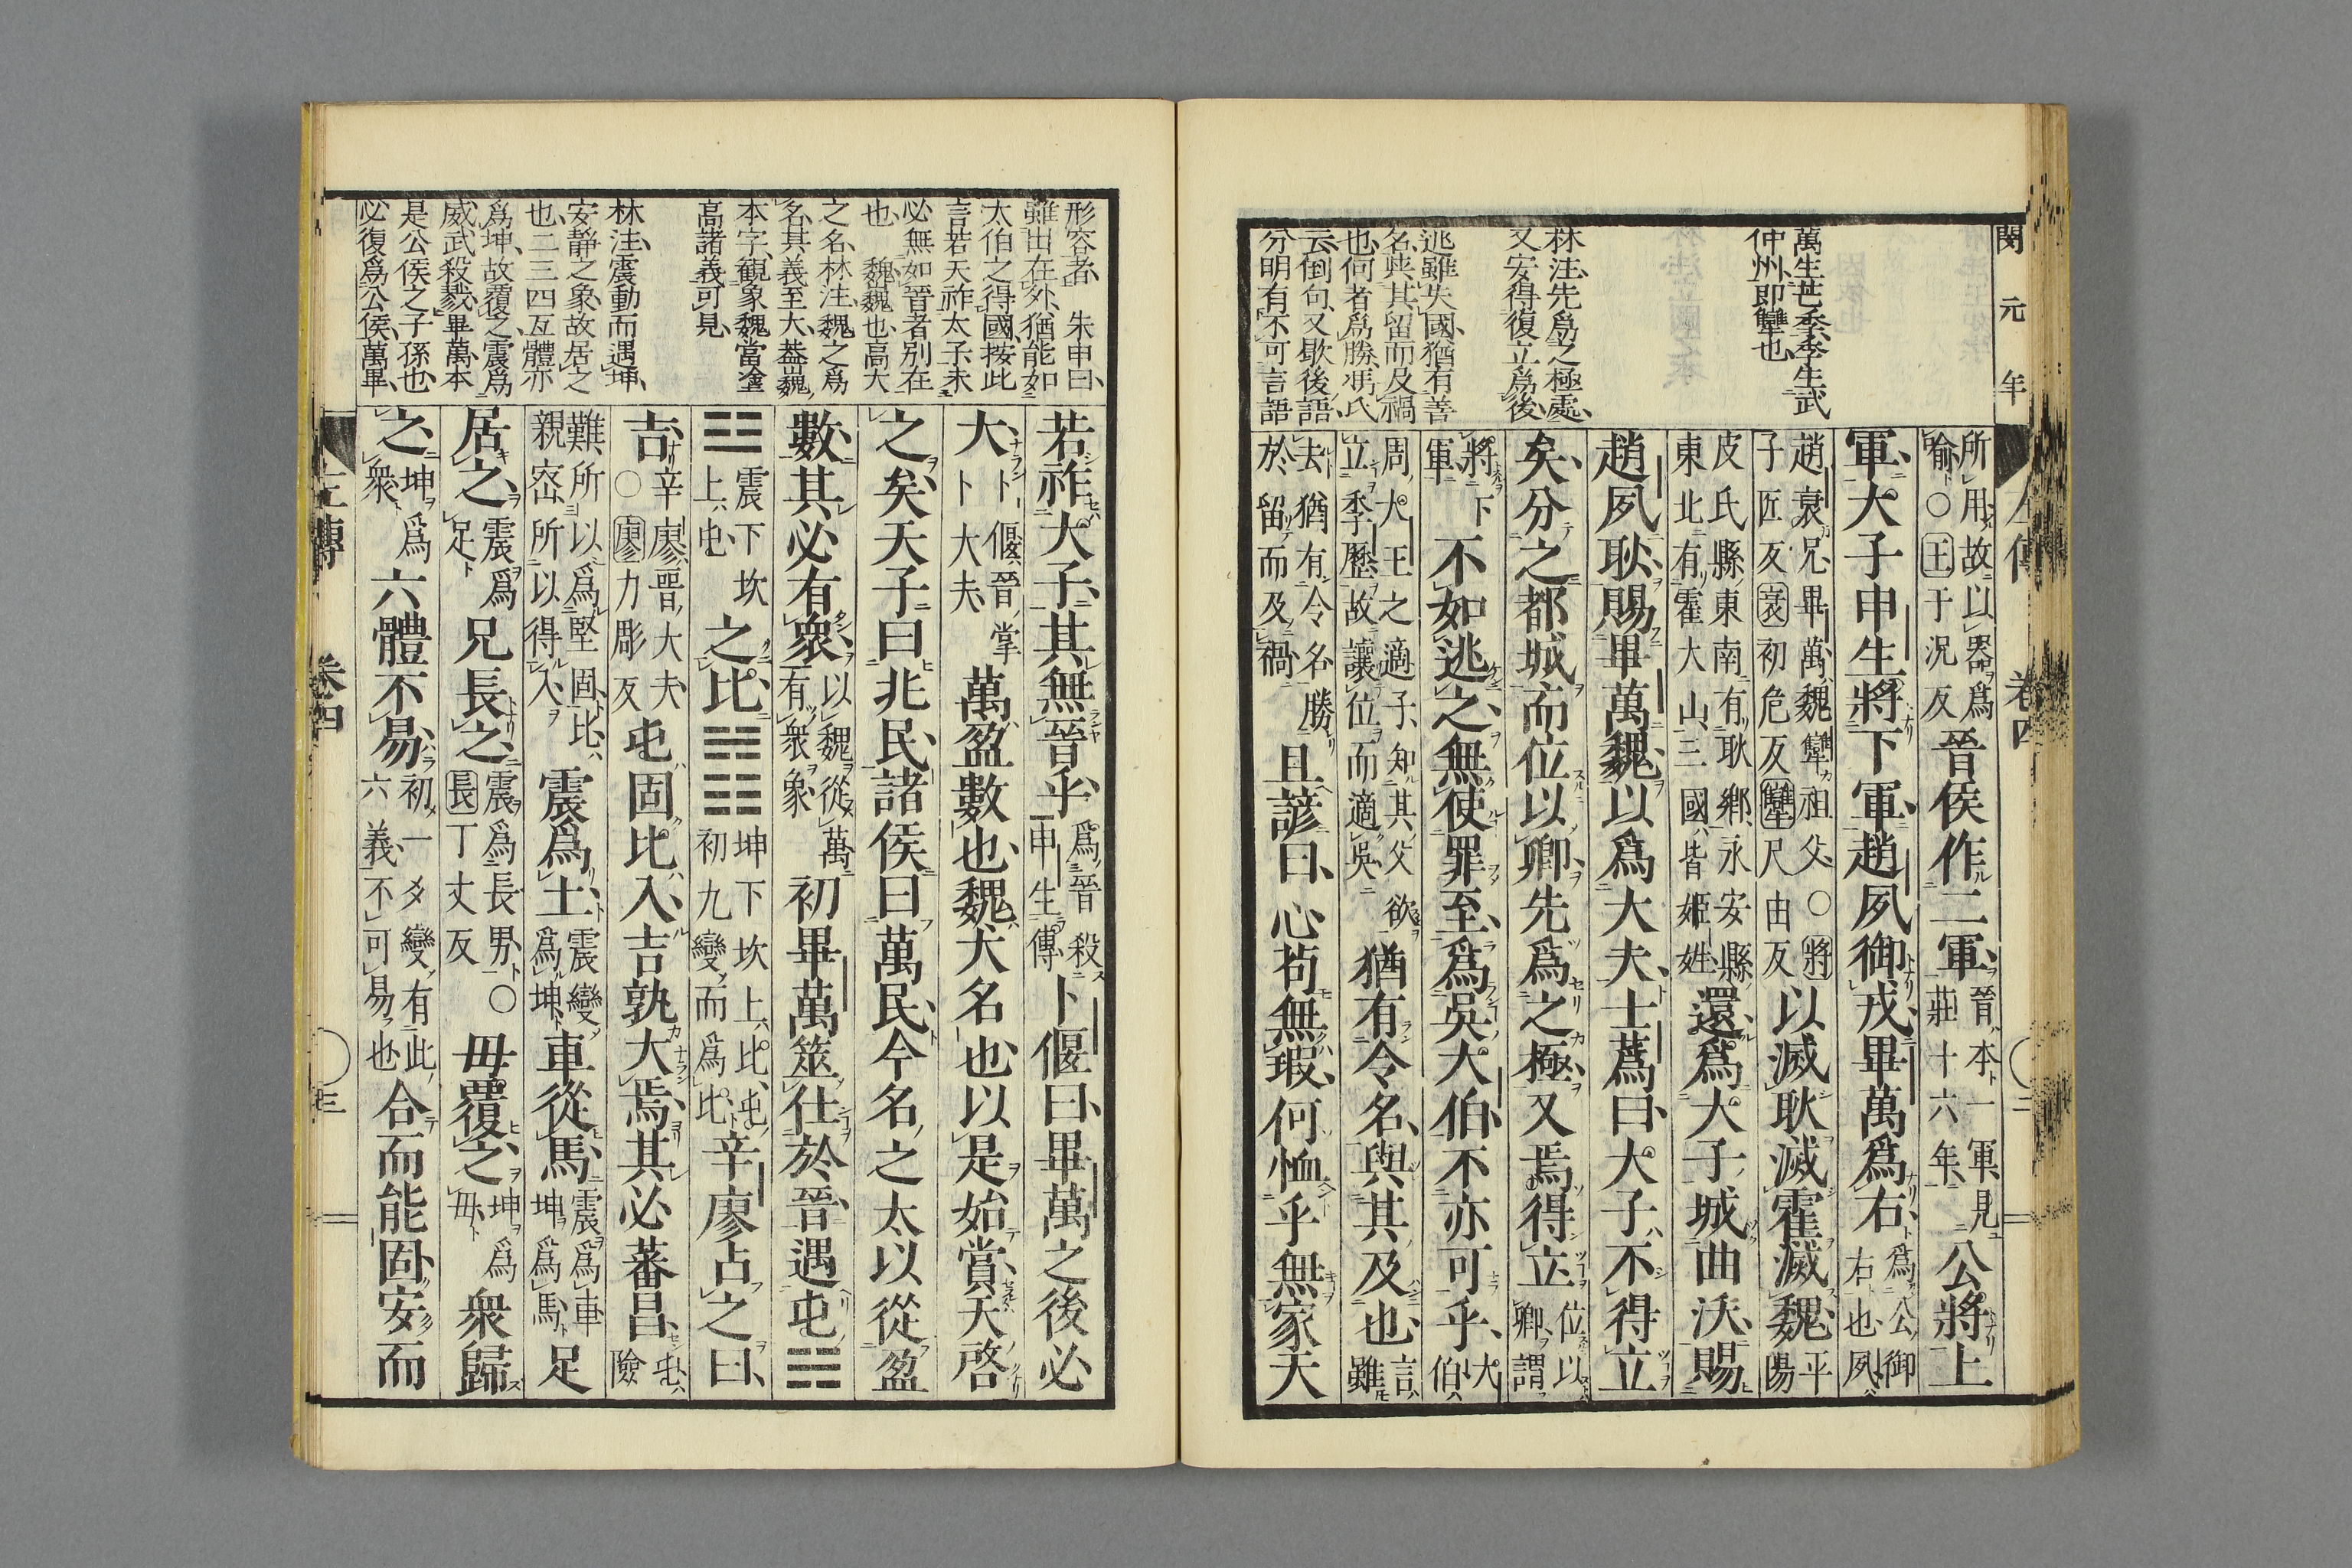 閔元年
萬生芒季季生武
仲州卽犫也
林注先爲之極處
又安得復立爲後
逃雖失國猶有善
名與其留而及禍
也何者爲勝馮氏
云倒句又歇後語
分明有不可言語
所用故以器爲
喻○王于況反
晉侯作二軍
晉本一軍見
莊十六年
公將上
軍大子申生將下軍趙夙御戎畢萬爲右
爲公御
右也夙
趙衰兄畢萬魏犫祖父○將
子匠反衰初危反犫尺由反
以滅耿滅霍滅魏
平陽
皮氏縣東南有耿鄉永安縣
東北有霍大山三國皆姬姓
還爲大子城曲沃賜
趙夙耿賜畢萬魏以爲大夫士蒍曰大子不得立
矣分之都城而位以卿先爲之極又焉得立
位以
卿謂
將下
軍
不如逃之無使罪至爲吳大伯不亦可乎
大
伯
周大王之適子知其父欲
立季歷故讓位而適吳
猶有令名與其及也
言
雖
去猶有令名勝
於留而及禍
且諺曰心苟無瑕何恤乎無家天
左傳 卷四
二
形容者 朱申曰
雖出在外猶能如
太伯之得國按此
言若天祚太子未
必無如晉者別在
也 魏巍也高大
之名林注魏之爲
名其義至大蓋巍
本字觀象魏當塗
高諸義可見
林注震動而遇坤
安靜之象故居之
也二三四互體亦
爲坤故覆之震爲
威武殺戮畢萬本
是公侯之子孫也
必復爲公侯萬畢
若祚大子其無晉乎
爲晉殺
申生傳
卜偃曰畢萬之後必
大
卜偃晉掌
卜大夫
萬盈數也魏大名也以是始賞天啓
之矣天子曰兆民諸侯曰萬民今名之太以從盈
數其必有衆
以魏從萬
有衆象
初畢萬筮仕於晉遇屯䷂
震下坎
上屯
之比䷇
坤下坎上比屯
初九變而爲比
辛廖占之曰
吉
辛廖晉大夫
○廖力彫反
屯固比入吉孰大焉其必蕃昌
屯
險
難所以爲堅固比
親密所以得入
震爲土
震變
爲坤
車從馬
震爲車
坤爲馬
足
居之
震爲
足
兄長之
震爲長男○
長丁丈反
毋覆之
坤爲
毋
衆歸
之
坤爲
衆
六體不易
初一爻變有此
六義不可易也
合而能固安而
左傳 卷四
三